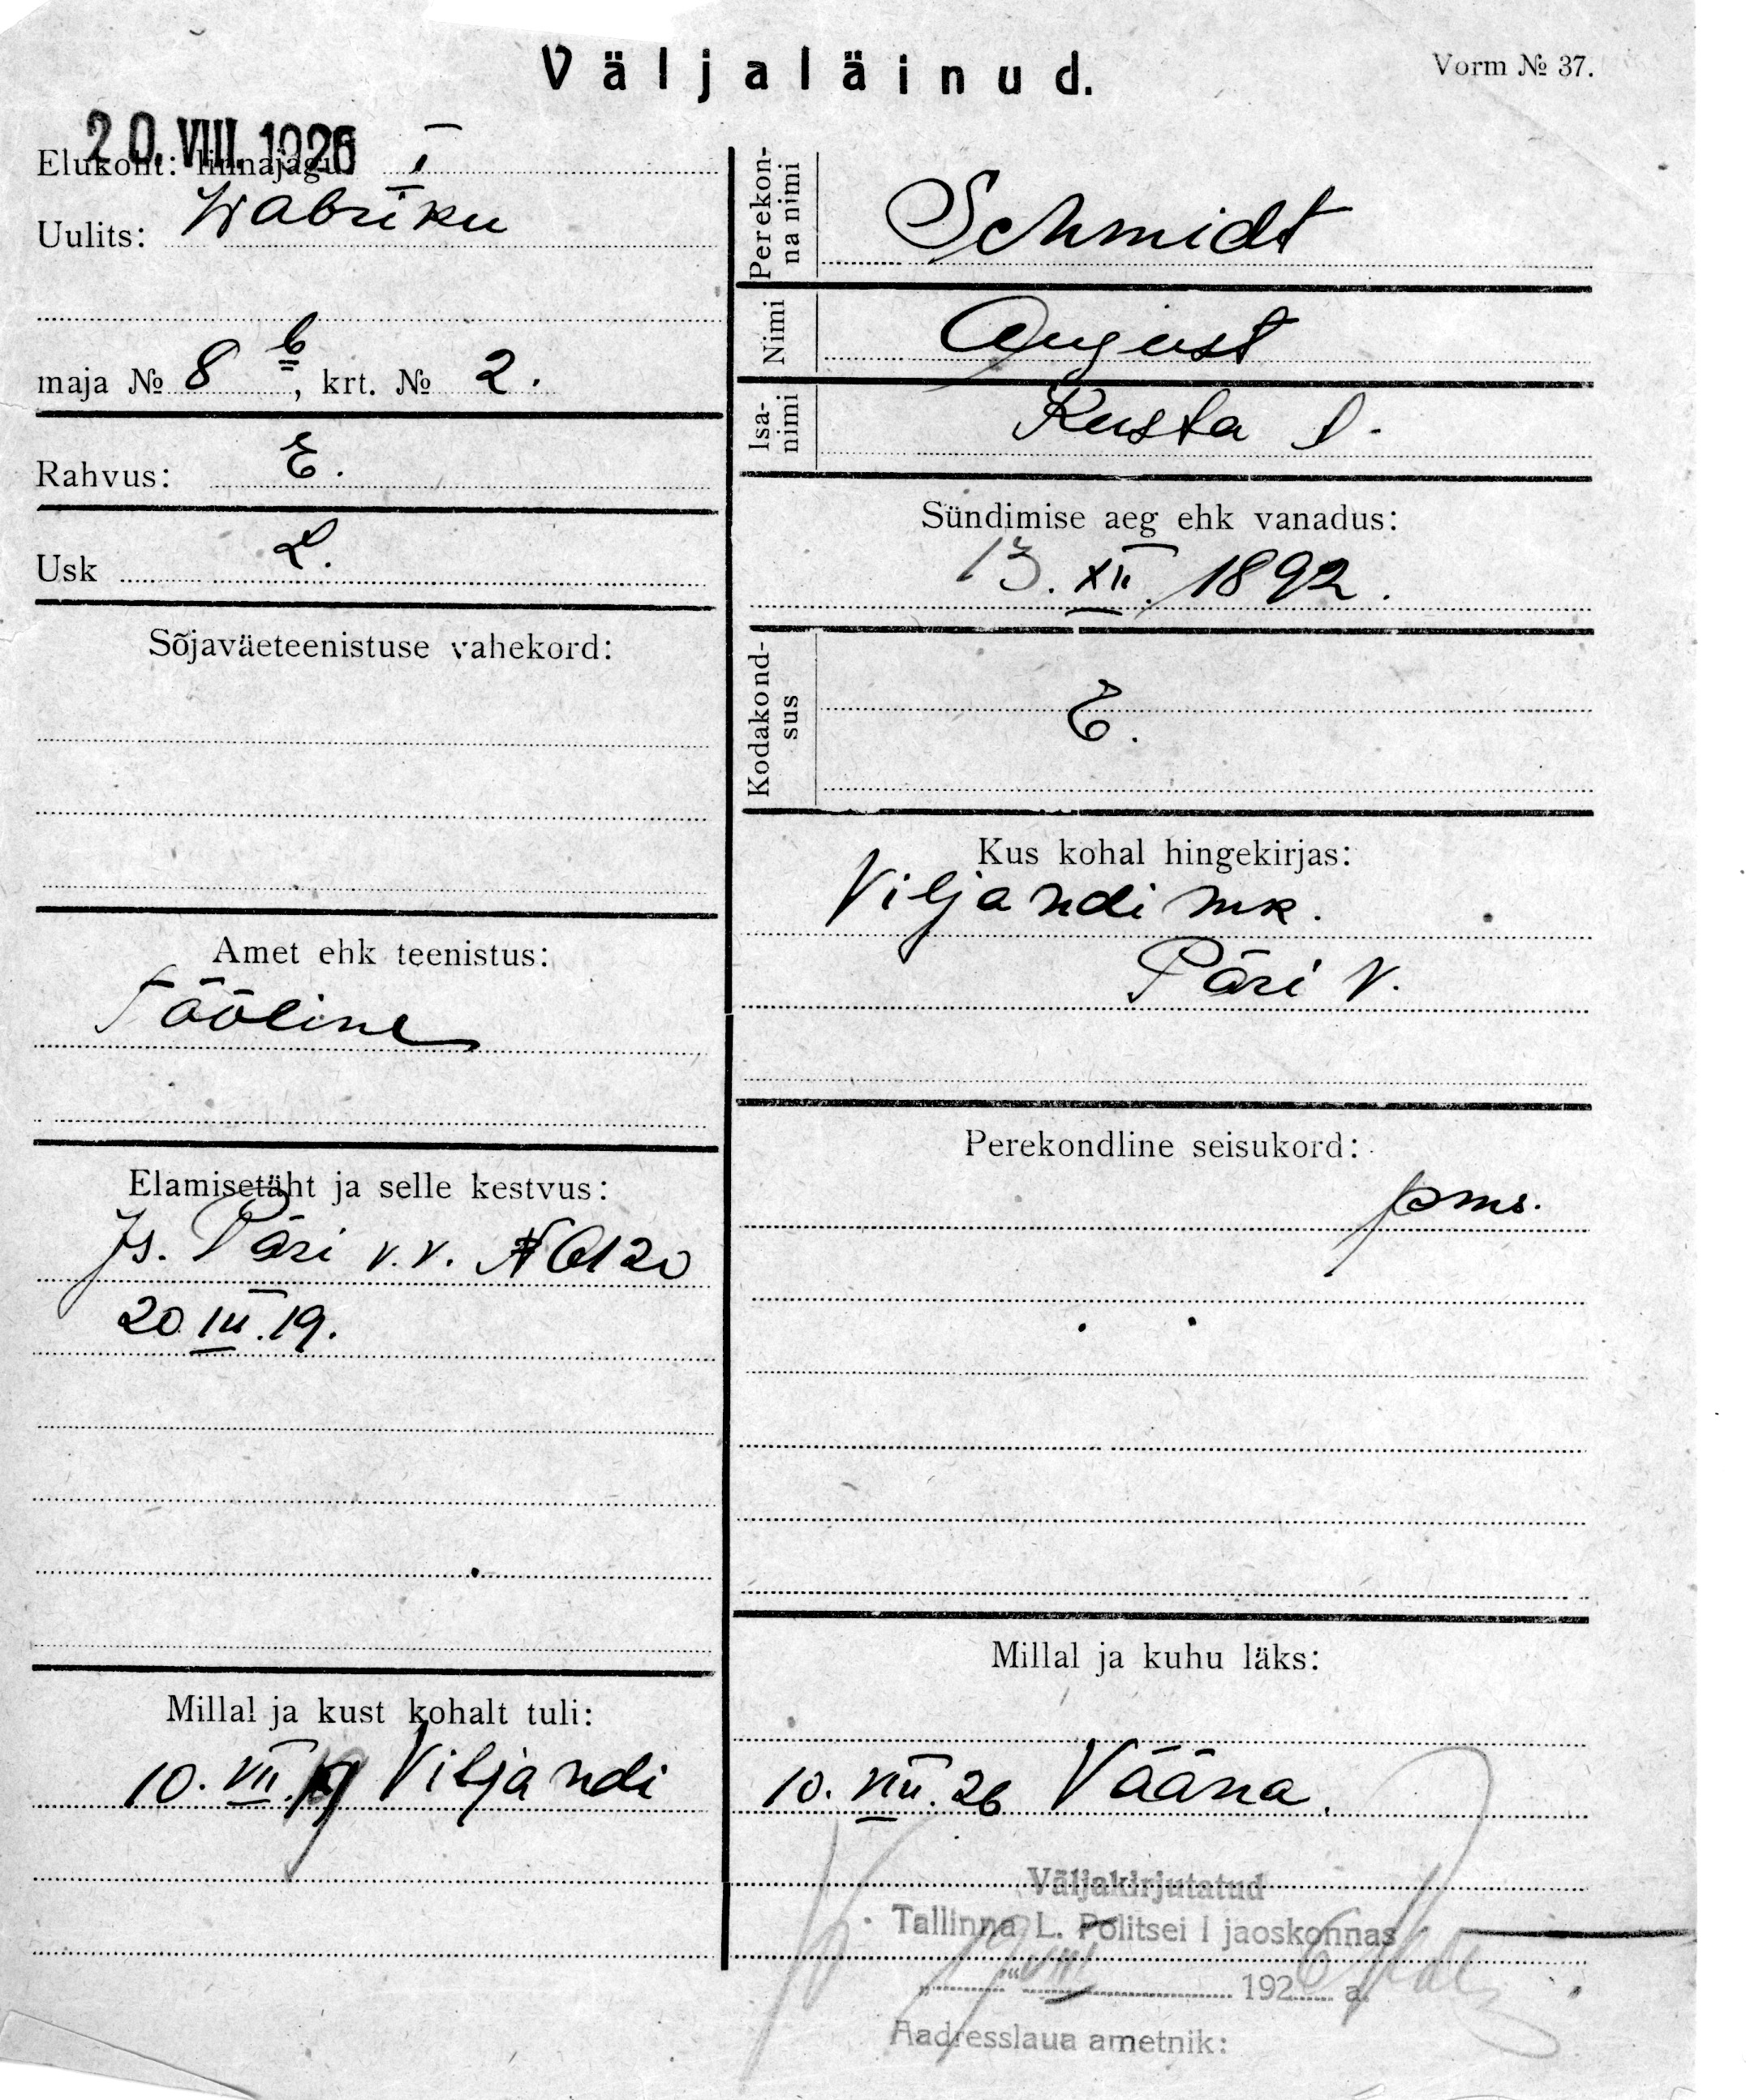 Väljaläinud.
Vorm № 37.
20. VIII. 1926
Elukoht: linnajagu I
Uulits: Wabriku
maja № 8 b, krt. № 2.
Rahvus: E.
Usk L.
Sõjaväeteenistuse vahekord:
Amet ehk teenistus:
Tööline
Elamisetäht ja selle kestvus:
Is. Päri v.v. № 6120
20. III. 19.
Millal ja kust kohalt tuli:
10. VII. 19 Viljandi
Perekonna nimi
Schmidt
Nimi
August
Isanimi
Kusta p.
Sündimise aeg ehk vanadus:
13. XII. 1892.
Kodakondsus
E.
Kus kohal hingekirjas:
Viljandi mk.
Päri v.
Perekondline seisukord:
pms.
Millal ja kuhu läks:
10. VIII. 26 Vääna.
Väljakirjutatud
Tallinna L. Politsei I jaoskonnas
19 "VIII 1926 a.
Aadresslaua ametnik: